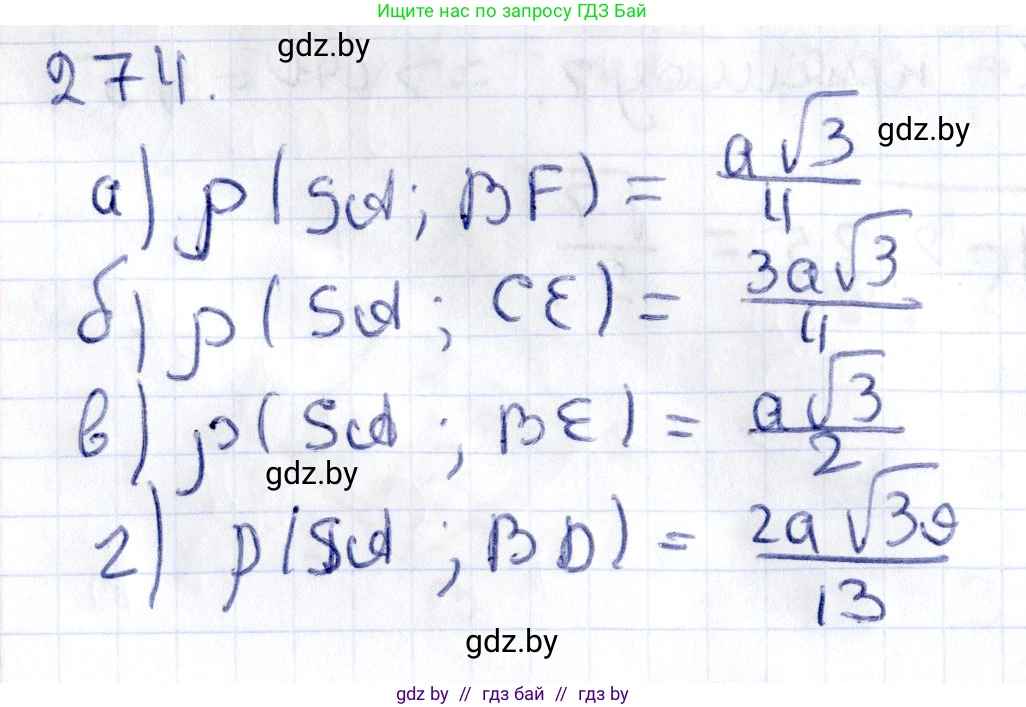 Ищите нас по запросу ГДЗ Бай
274.
gdz.by
а) ρ(SA; BF) = a√3/4
gdz.by
б) ρ(SA; CE) = 3a√3/4
в) ρ(SA; BE) = a√3/2
gdz.by
г) ρ(SA; BD) = 2a√39/13
gdz.by
gdz by // гдз бай // gdz by